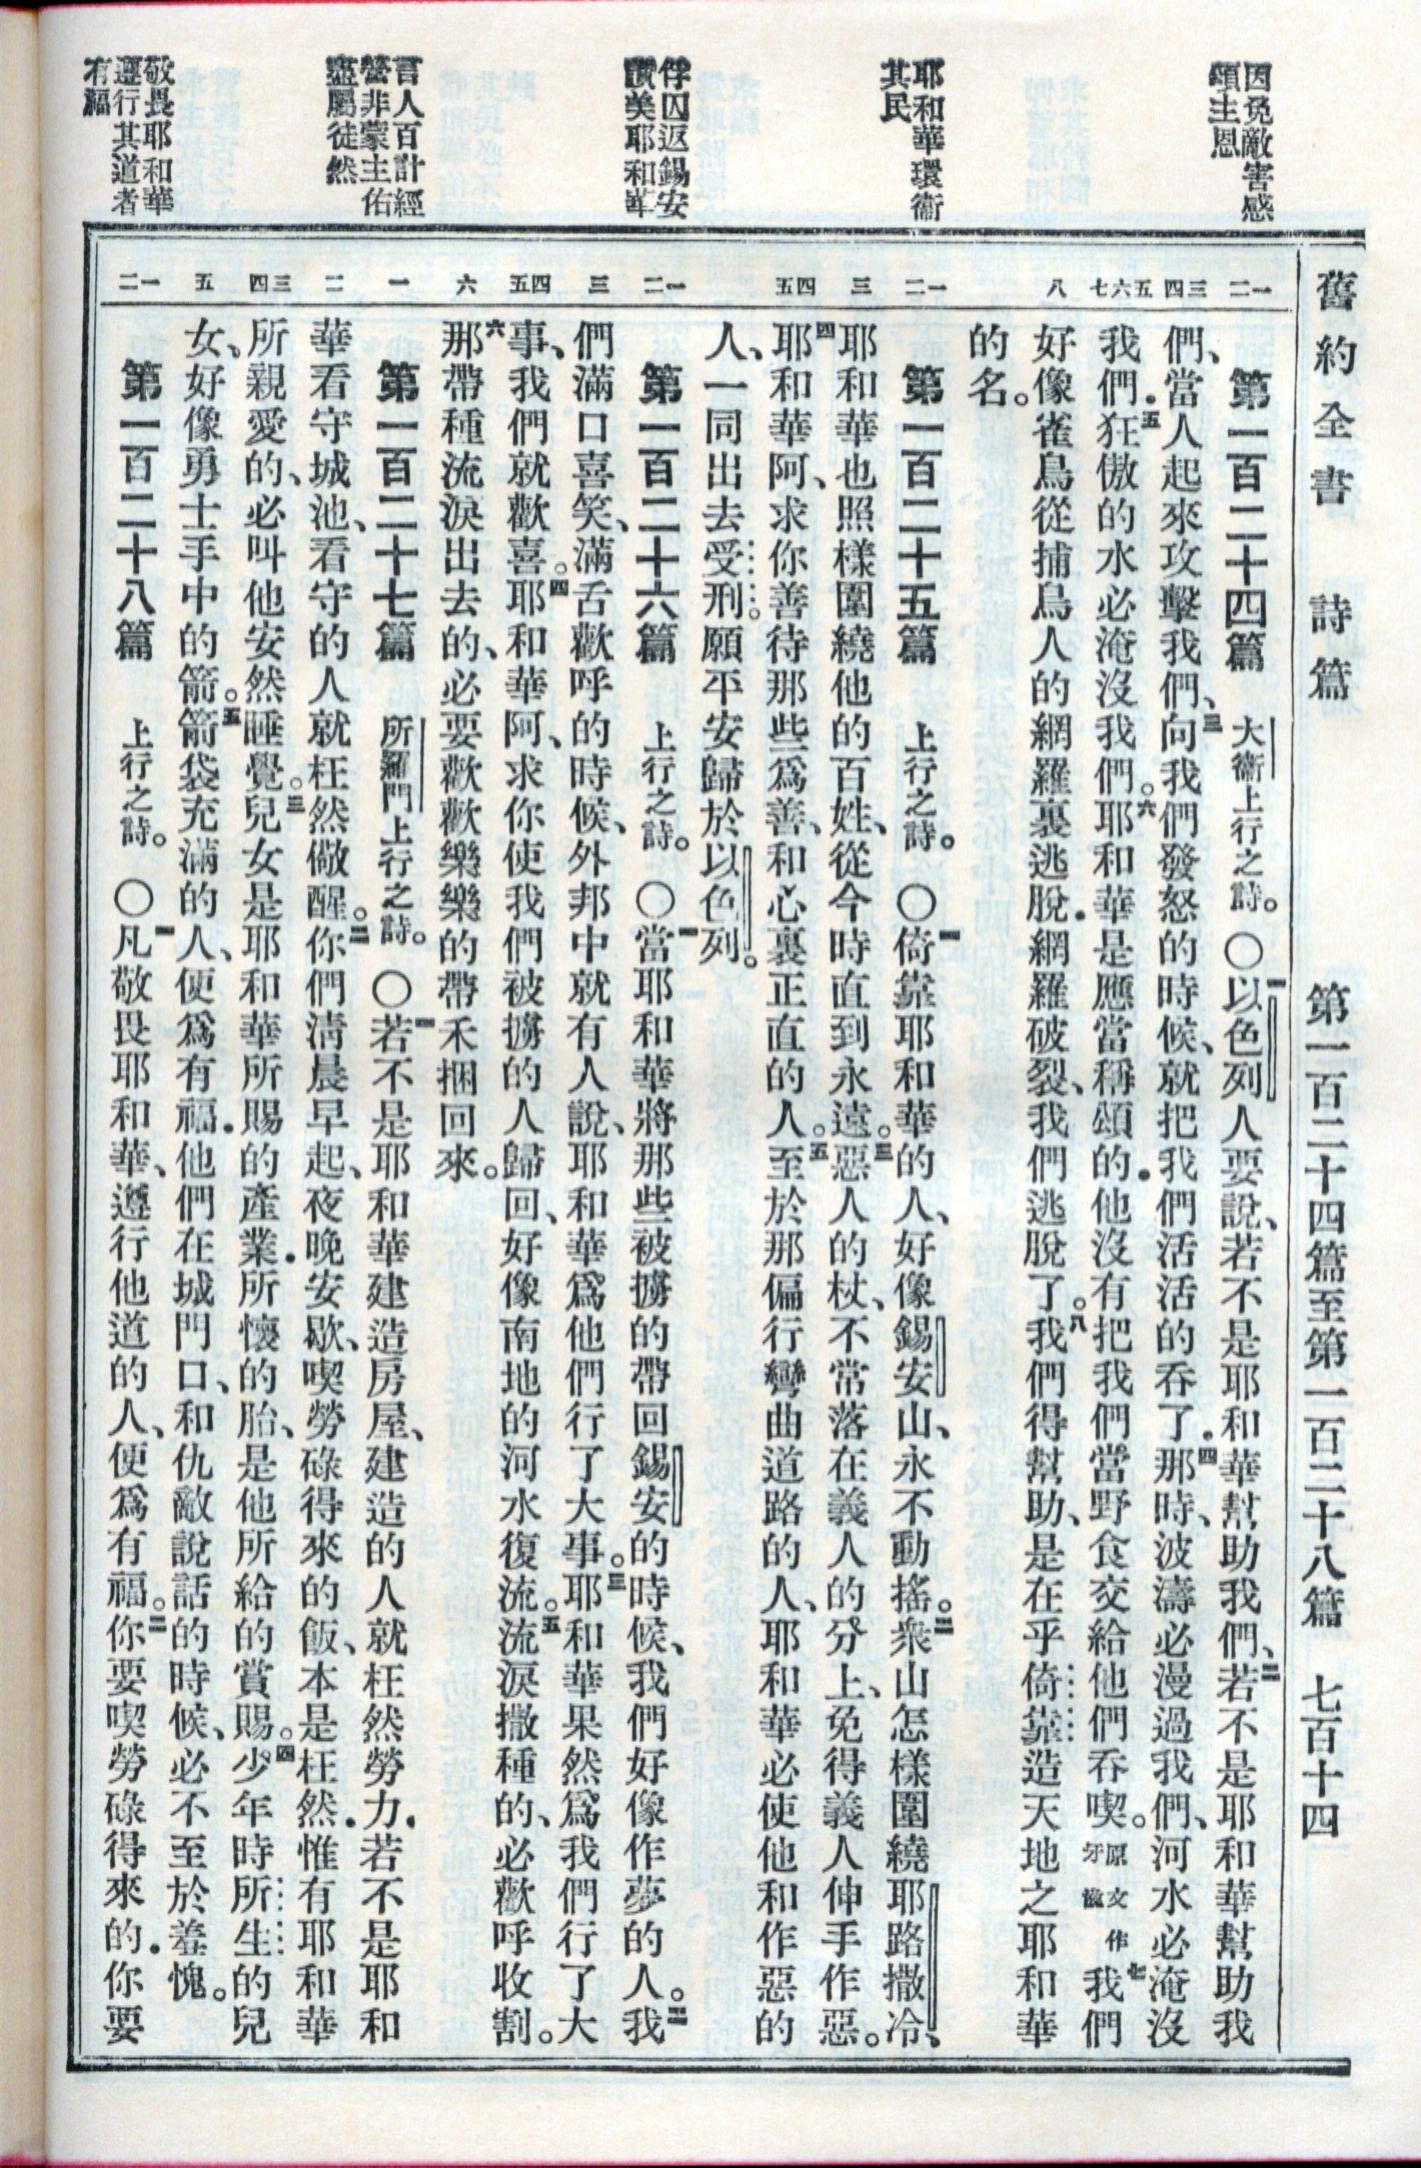 舊約全書　詩篇　第一百二十四篇至第一百二十八篇　七百十四
因免敵害感
頌主恩
耶和華環衞
其民
俘囚返錫安
讚美耶和華
言人百計經
營非蒙主佑
盡屬徒然
敬畏耶和華
遵行其道者
有福
一二
第一百二十四篇　大衞上行之詩。〇一以色列人要說、若不是耶和華幫助我們、二若不是耶和華幫助我
三四
們、當人起來攻擊我們、三向我們發怒的時候、就把我們活活的吞了．四那時、波濤必漫過我們、河水必淹沒
五六七
我們．五狂傲的水必淹沒我們。六耶和華是應當稱頌的．他沒有把我們當野食交給他們吞喫。原文作牙齒七我們
八
好像雀鳥從捕鳥人的網羅裏逃脫．網羅破裂、我們逃脫了。八我們得幫助、是在乎倚靠造天地之耶和華
的名。
一二
第一百二十五篇　上行之詩。〇一倚靠耶和華的人、好像錫安山、永不動搖。二衆山怎樣圍繞耶路撒冷、
三
耶和華也照樣圍繞他的百姓、從今時直到永遠。三惡人的杖、不常落在義人的分上、免得義人伸手作惡。
四五
四耶和華阿、求你善待那些爲善、和心裏正直的人。五至於那偏行彎曲道路的人、耶和華必使他和作惡的
人、一同出去受刑。願平安歸於以色列。
一二
第一百二十六篇　上行之詩。〇一當耶和華將那些被擄的帶回錫安的時候、我們好像作夢的人。二我
三
們滿口喜笑、滿舌歡呼的時候、外邦中就有人說、耶和華爲他們行了大事。三耶和華果然爲我們行了大
四五
事、我們就歡喜。四耶和華阿、求你使我們被擄的人歸回、好像南地的河水復流。五流淚撒種的、必歡呼收割。
六
六那帶種流淚出去的、必要歡歡樂樂的帶禾捆回來。
一
第一百二十七篇　所羅門上行之詩。〇一若不是耶和華建造房屋、建造的人就枉然勞力．若不是耶和
二
華看守城池、看守的人就枉然儆醒。二你們淸晨早起、夜晚安歇、喫勞碌得來的飯、本是枉然．惟有耶和華
三四
所親愛的、必叫他安然睡覺。三兒女是耶和華所賜的產業．所懷的胎、是他所給的賞賜。四少年時所生的兒
五
女、好像勇士手中的箭。五箭袋充滿的人、便爲有福．他們在城門口、和仇敵說話的時候、必不至於羞愧。
一二
第一百二十八篇　上行之詩。〇一凡敬畏耶和華、遵行他道的人、便爲有福。二你要喫勞碌得來的．你要